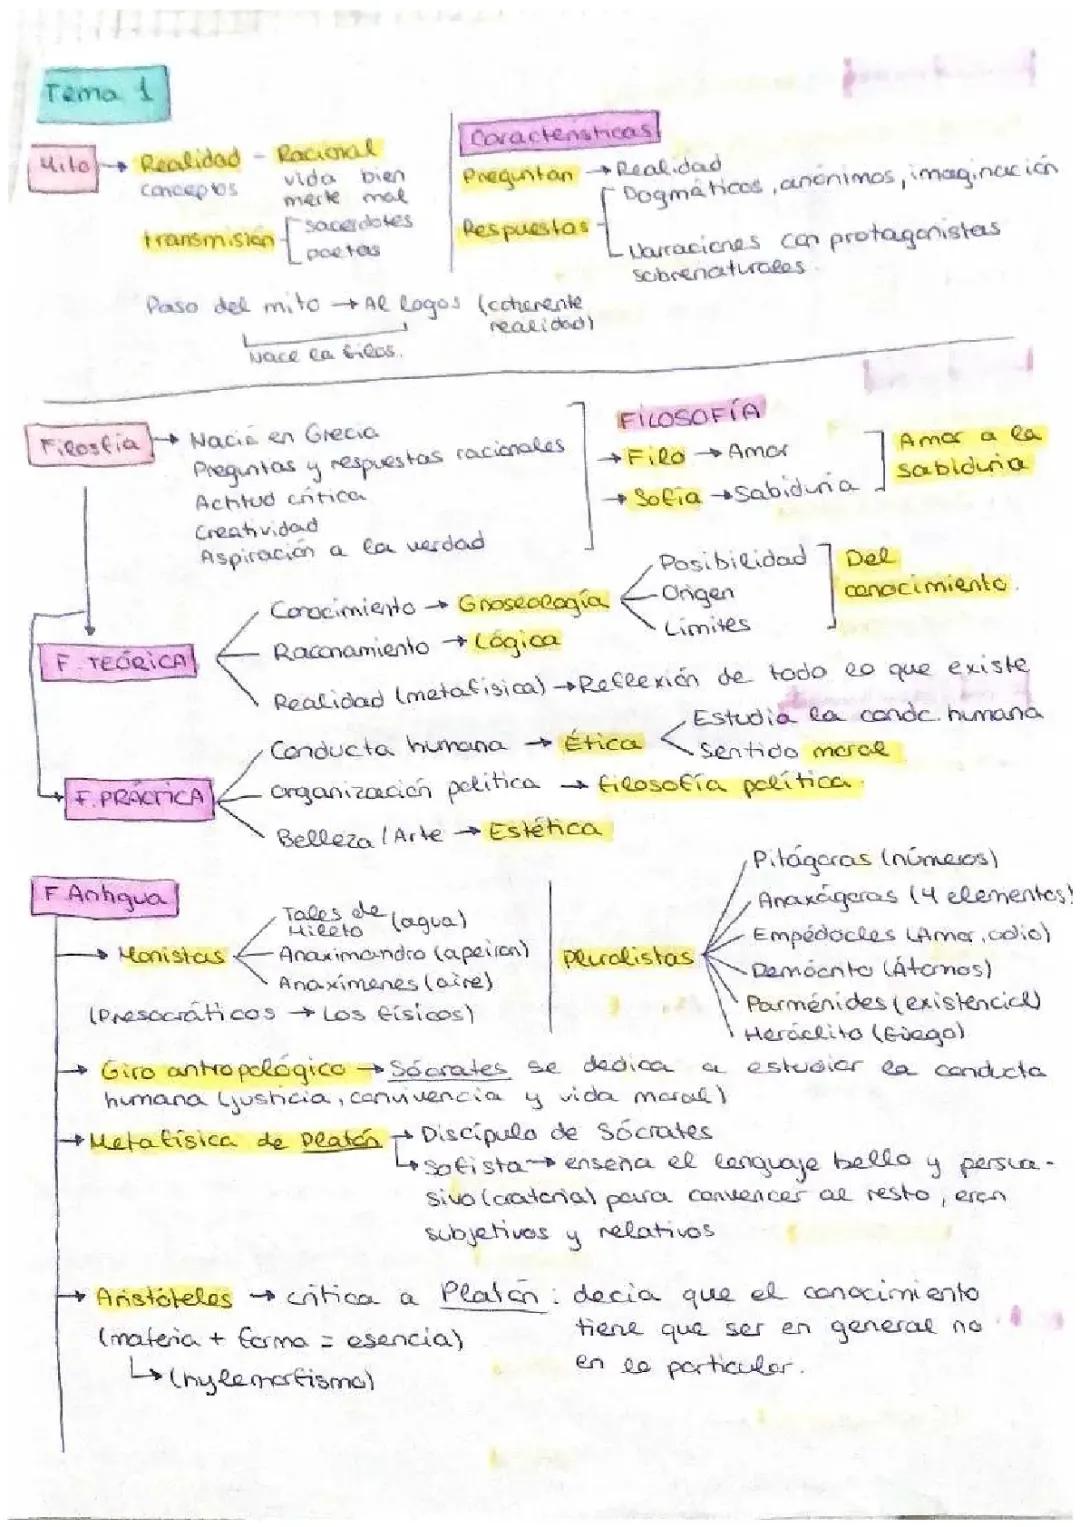 Tema 1
Mito → Realidad - Racional
conceptos vida bien
merte mal
transmisión sacerdotes
poetas
Características
Preguntan → Realidad
Respuestas Dogmáticos, anónimos, imaginación
Narraciones con protagonistas
sobrenaturales.
Paso del mito → Al logos (coherente
realidad)
Nace la filos.
Filosfía → Nació en Grecia
Preguntas y respuestas racionales
Actitud crítica
Creatividad
Aspiración a la verdad
FILOSOFÍA
→ Filo → Amor
→ Sofía → Sabiduría
Amor a la
sabiduria
F. TEÓRICA
Conocimiento → Gnoseología
Posibilidad
Origen
Límites
Del
conocimiento.
Raconamiento → Lógica
Realidad (metafísica) → Reflexión de todo lo que existe
F. PRÁCTICA
Conducta humana → Ética
Estudia la condc. humana
Sentido moral
organización política → filosofía política.
Belleza / Arte → Estética
F Antigua
→ Monistas
Tales de
Mileto (agua)
Anaximandro (apeiron)
Anaxímenes (aire)
(Presocráticos → Los físicos)
Pluralistas
Pitágoras (números)
Anaxágoras (4 elementos)
Empédocles (Amor, odio)
Demócrito (Átomos)
Parménides (existencial)
Heráclito (fuego)
→ Giro antropológico → Sócrates se dedica a estudiar la conducta
humana (justicia, convivencia y vida moral)
→ Metafísica de Platón → Discípulo de Sócrates
↳ Sofista → enseña el lenguaje bello y persua-
sivo (oratoria) para convencer al resto, eran
subjetivos y relativos
→ Aristóteles → crítica a Platón: decia que el conocimiento
(materia + forma = esencia) tiene que ser en general no
↳ (hylemorfismo) en lo particular.